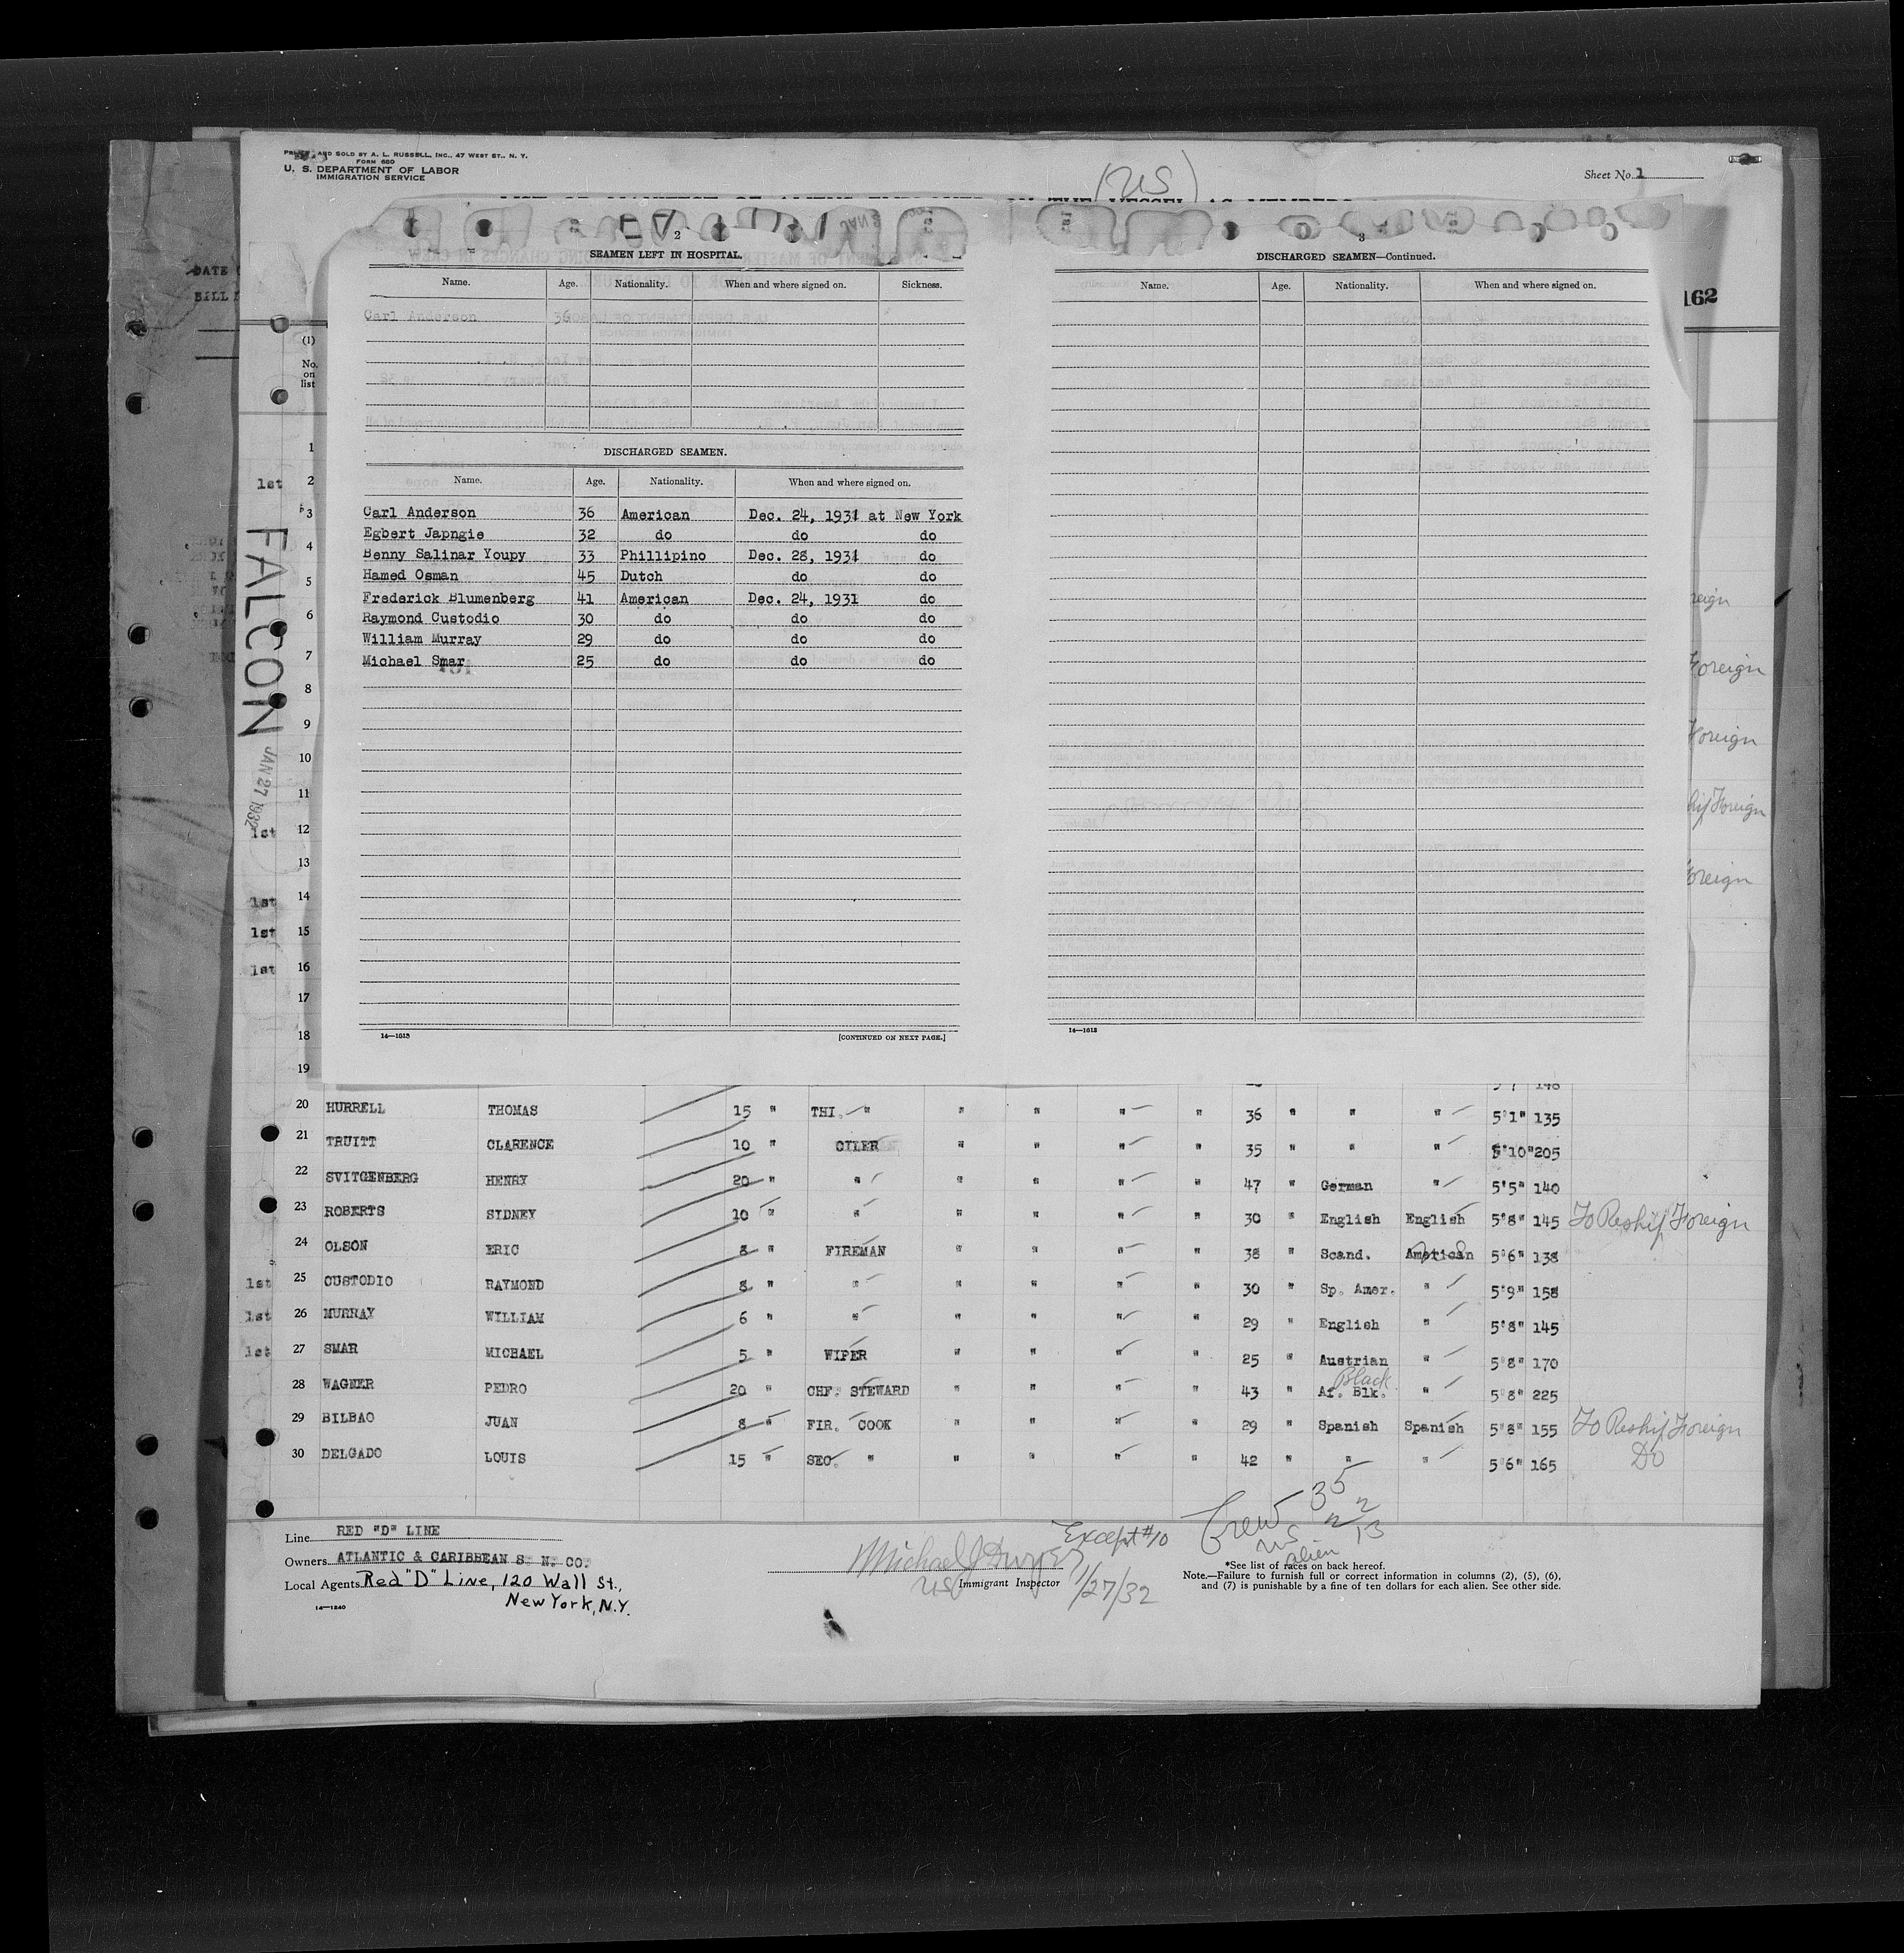 AND SOLD BY A. L. RUSSELL, INC., 47 WEST ST., N. Y.
FORM 680
U. S. DEPARTMENT OF LABOR
IMMIGRATION SERVICE
(US)
Sheet No. 1
2
SEAMEN LEFT IN HOSPITAL.
Name. Age. Nationality. When and where signed on. Sickness.
Carl Anderson 36
DISCHARGED SEAMEN.
Name. Age. Nationality. When and where signed on.
Carl Anderson 36 American Dec. 24, 1931 at New York
Egbert Japngie 32 do do do
Benny Salinar Youpy 33 Phillipino Dec. 28, 1931 do
Hamed Osman 45 Dutch do do
Frederick Blumenberg 41 American Dec. 24, 1931 do
Raymond Custodio 30 do do do
William Murray 29 do do do
Michael Smar 25 do do do
14—1613
[CONTINUED ON NEXT PAGE.]
3
DISCHARGED SEAMEN—Continued.
Name. Age. Nationality. When and where signed on.
14—1613
162
(1)
No.
on
list
1
1st 2
3
4
5
6
7
8
9
10
11
1st 12
13
1st 14
1st 15
1st 16
17
18
19
FALCON
JAN 27 1932
reign
Foreign
Foreign
Foreign
Foreign
20 HURRELL THOMAS 15 " THI. " " " " " 36 " " " 5'1" 135
21 TRUITT CLARENCE 10 " OILER " " " " 35 " " " 5'10" 205
22 SVITGENBERG HENRY 20 " " " " " " 47 " German " 5'5" 140
23 ROBERTS SIDNEY 10 " " " " " " 30 " English English 5'8" 145 To Reship Foreign
24 OLSON ERIC 8 " FIREMAN " " " " 38 " Scand. American 5'6" 138
1st 25 CUSTODIO RAYMOND 8 " " " " " " 30 " Sp. Amer. " 5'9" 158
1st 26 MURRAY WILLIAM 6 " " " " " " 29 " English " 5'8" 145
1st 27 SMAR MICHAEL 5 " WIPER " " " " 25 " Austrian " 5'8" 170
Black
28 WAGNER PEDRO 20 " CHF. STEWARD " " " " 43 " Af. Blk. " 5'8" 225
29 BILBAO JUAN 8 " FIR. COOK " " " " 29 " Spanish Spanish 5'8" 155 To Reship Foreign
30 DELGADO LOUIS 15 " SEC. " " " " " 42 " " " 5'6" 165 Do
Line RED "D" LINE
Owners ATLANTIC & CARIBBEAN S. N. CO.
Local Agents Red "D" Line, 120 Wall St.,
New York, N.Y.
14—1240
Except #10
Michael J Dwyer
US Immigrant Inspector 1/27/32
Crew 35
US 22
alien 13
*See list of races on back hereof.
Note.—Failure to furnish full or correct information in columns (2), (5), (6),
and (7) is punishable by a fine of ten dollars for each alien. See other side.